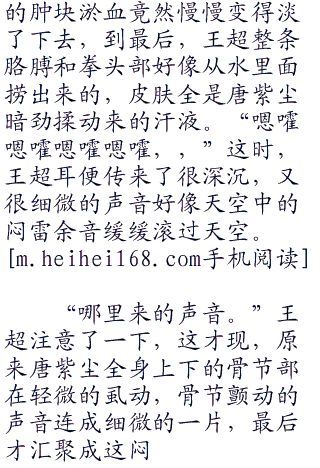 的肿块淤血竟然慢慢变得淡
了下去，到最后，王超整条
胳膊和拳头部好像从水里面
捞出来的，皮肤全是唐紫尘
暗劲揉动来的汗液。“嗯嚯
嗯嚯嗯嚯嗯嚯，，”这时，
王超耳便传来了很深沉，又
很细微的声音好像天空中的
闷雷余音缓缓滚过天空。
[m.heihei168.com手机阅读]
“哪里来的声音。”王
超注意了一下，这才现，原
来唐紫尘全身上下的骨节部
在轻微的虱动，骨节颤动的
声音连成细微的一片，最后
才汇聚成这闷